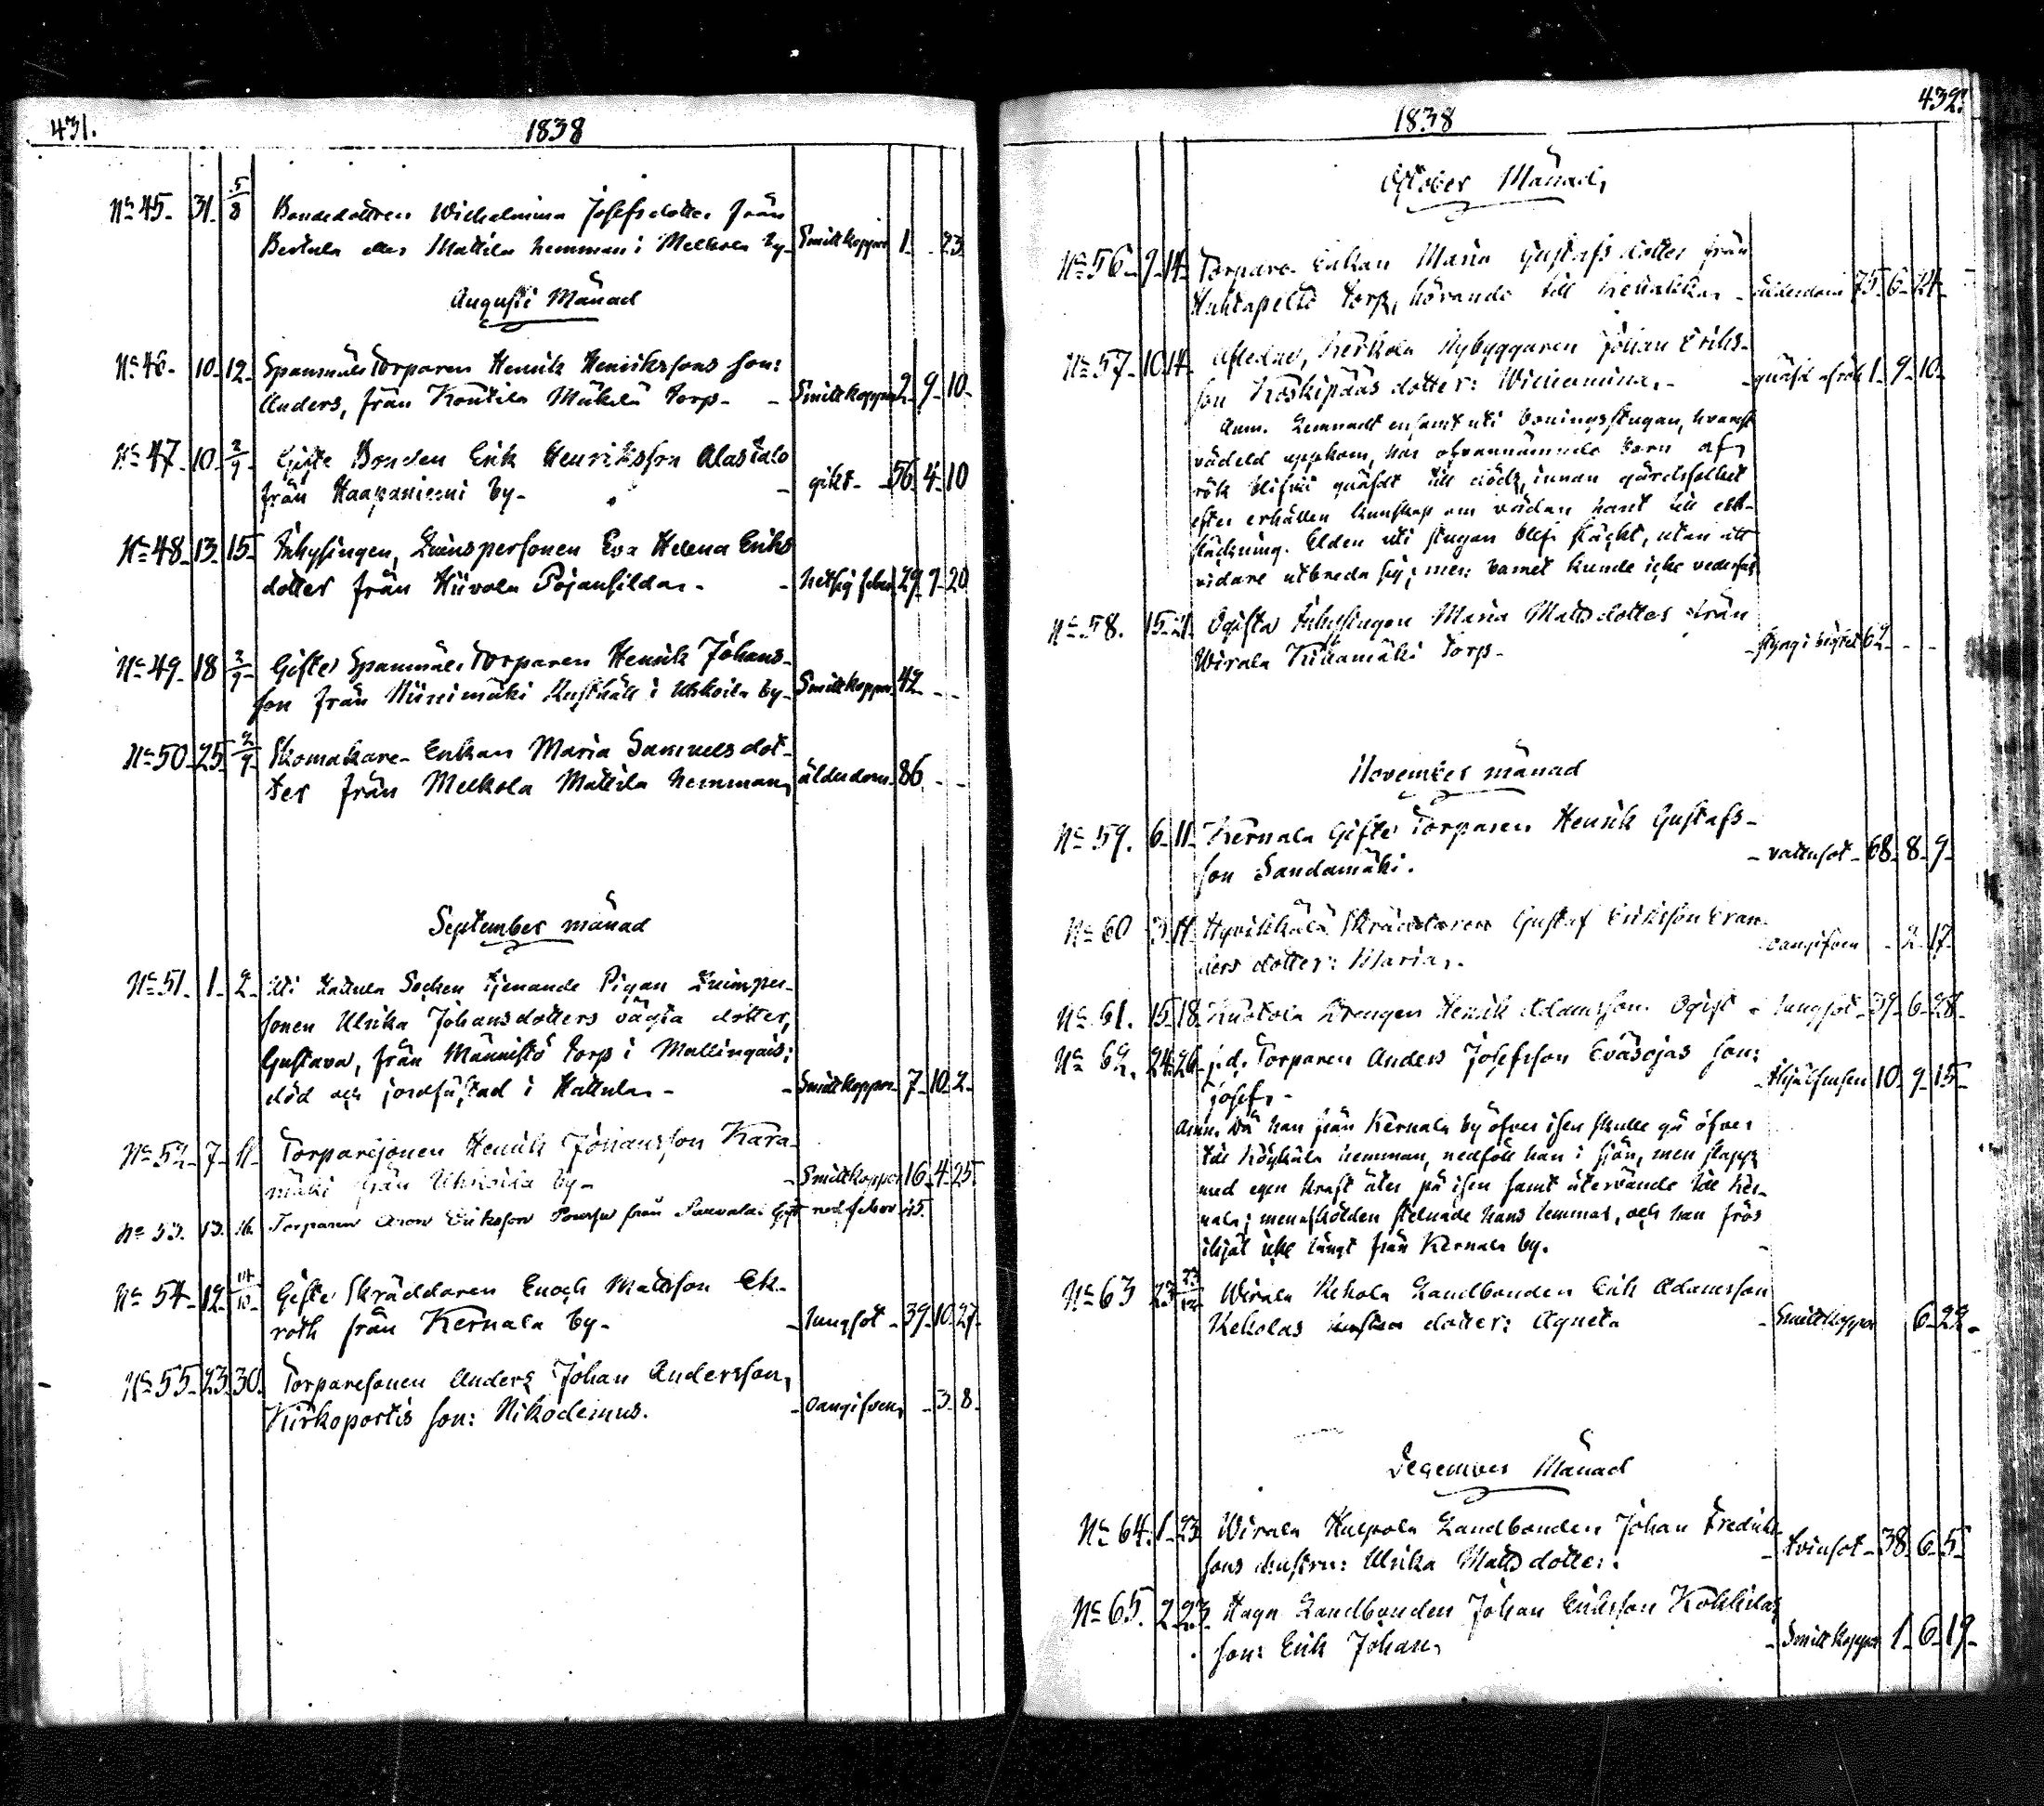 431.
1838
No 45. 31. 5/8 Bondedottren Wilhelmina Josefsdotter från
Bertula eller Mattila hemman i Melkola by. Smittkoppor 1. - 23.
Augusti Månad
No 46. 10. 12. Spannmåls Torparen Henrik Henrikssons son:
Anders, från Kontila Mäkelä torp. - Smittkoppor 2. 9. 10.
No 47. 10. 2/9. Gifte Bonden Erik Henriksson Alastalo
från Haapaniemi by. - gikt. - 56. 4. 10
No 48. 13. 15. Inhysingen, Qvinspersonen Eva Helena Eriks
dotter från Hiivola - hetsig feber 29. 7. 20
No 49. 18 2/9. Gifte Spanmåls Torparen Henrik Johans-
son från Niinimäki Rusthåll i Uhkoila by. Smittkoppor. 42. - -
No 50. 25. 2/9. Skomakare-Enkan Maria Samuelsdot-
ter från Melkola Mattila hemman, ålderdom. 86. - -
September månad
No 51. 1. 2. Uti Hattula Socken tjenande Pigan Qvinsper-
sonen Ulrika Johansdotters oägta dotter,
Gustava, från Männistö torp i Mallinqais;
död och jordfästad i Hattula. - Smittkoppor. 7. 10. 2.
No 52. 7. 11. Torparesonen Henrik Johansson Kara-
mäki från Uhkoila by. - Smittkoppor 16. 4. 25.
No 53. 13. 16. Torparen Aron Eriksson från Gift
No 54. 12. 14/10. Gifte Skräddaren Enoch Mattsson Ek-
roth från Kernala by. - lungsot. 39. 10. 27.
No 55. 23. 30. Torparesonen Anders Johan Andersson,
Kirkoportis son: Nikodemus. - oangifven, - 3. 8.
432.
1838
October Månad,
No 56. 9. 14. Torpare-Enkan Maria Gustafsdotter från
torp, hörande till - ålderdom 75. 6. 24.
No 57. 10. 14. Afledne, Kerkola Nybyggaren Johan Eriks-
son Koskipääs dotter: Wilhelmina. - qväfd af rök 1. 9. 10.
Anm. Lemnadt ensamt uti boningsstugan, hvarest
vådeld uppkom, har ofvannämnde barn af
rök blifvit qväfdt till döds, innan gårdsfolket
efter erhållen kunskap om vådan hant till eld-
släckning. Elden uti stugan blef släckt, utan att
vidare utbreda sig; men barnet kunde icke vederfås
No 58. 15. 21. Ogifta Inhysingen Maria Mattsdotter från
Wirala torp. - styng i bröstet 62. - -
November månad
No 59. 6. 11. Kernala Gifte Torparen Henrik Gustafs-
son Sandamäki. - vattusot - 68. 8. 9.
No 60 3. 11. Hyvikkälä Skräddaren Gustaf Eriksson Evan
ders dotter: Maria. oangifven - 2. 17.
No 61. 15. 18. Drengen Henrik Adamsson. Ogift - lungsot - 39. 6. 28.
No 62. 24. 26. j. d. Torparen Anders Josefsson Eväsojas son:
Josef. - ihjälfrusen 10. 9. 15.
Anm. Då han från Kernala by öfver isen skulle gå öfver
till hemman, nedföll han i sjön, men slapp
med egen kraft åter på isen samt återvände till Ker-
nala; men af kölden stelnade hans lemmar, och han frös
ihjäl icke långt från Kernala by. -
No 63 23 23/12. Wirala Kekola Landbonden Erik Adamsson
Kekolas dotter: Agneta - Smittkoppor 6. 22.
December Månad
No 64. 1. 23. Wirala Landbonden Johan Fredriks-
sons hustru: Ulrika Mattsdotter. - tvinsot - 38. 6. 5.
No 65. 2. 23. Haga Landbonden Johan Eriksson Kokkilas
son: Erik Johan, - Smittkoppor 1. 6. 19.